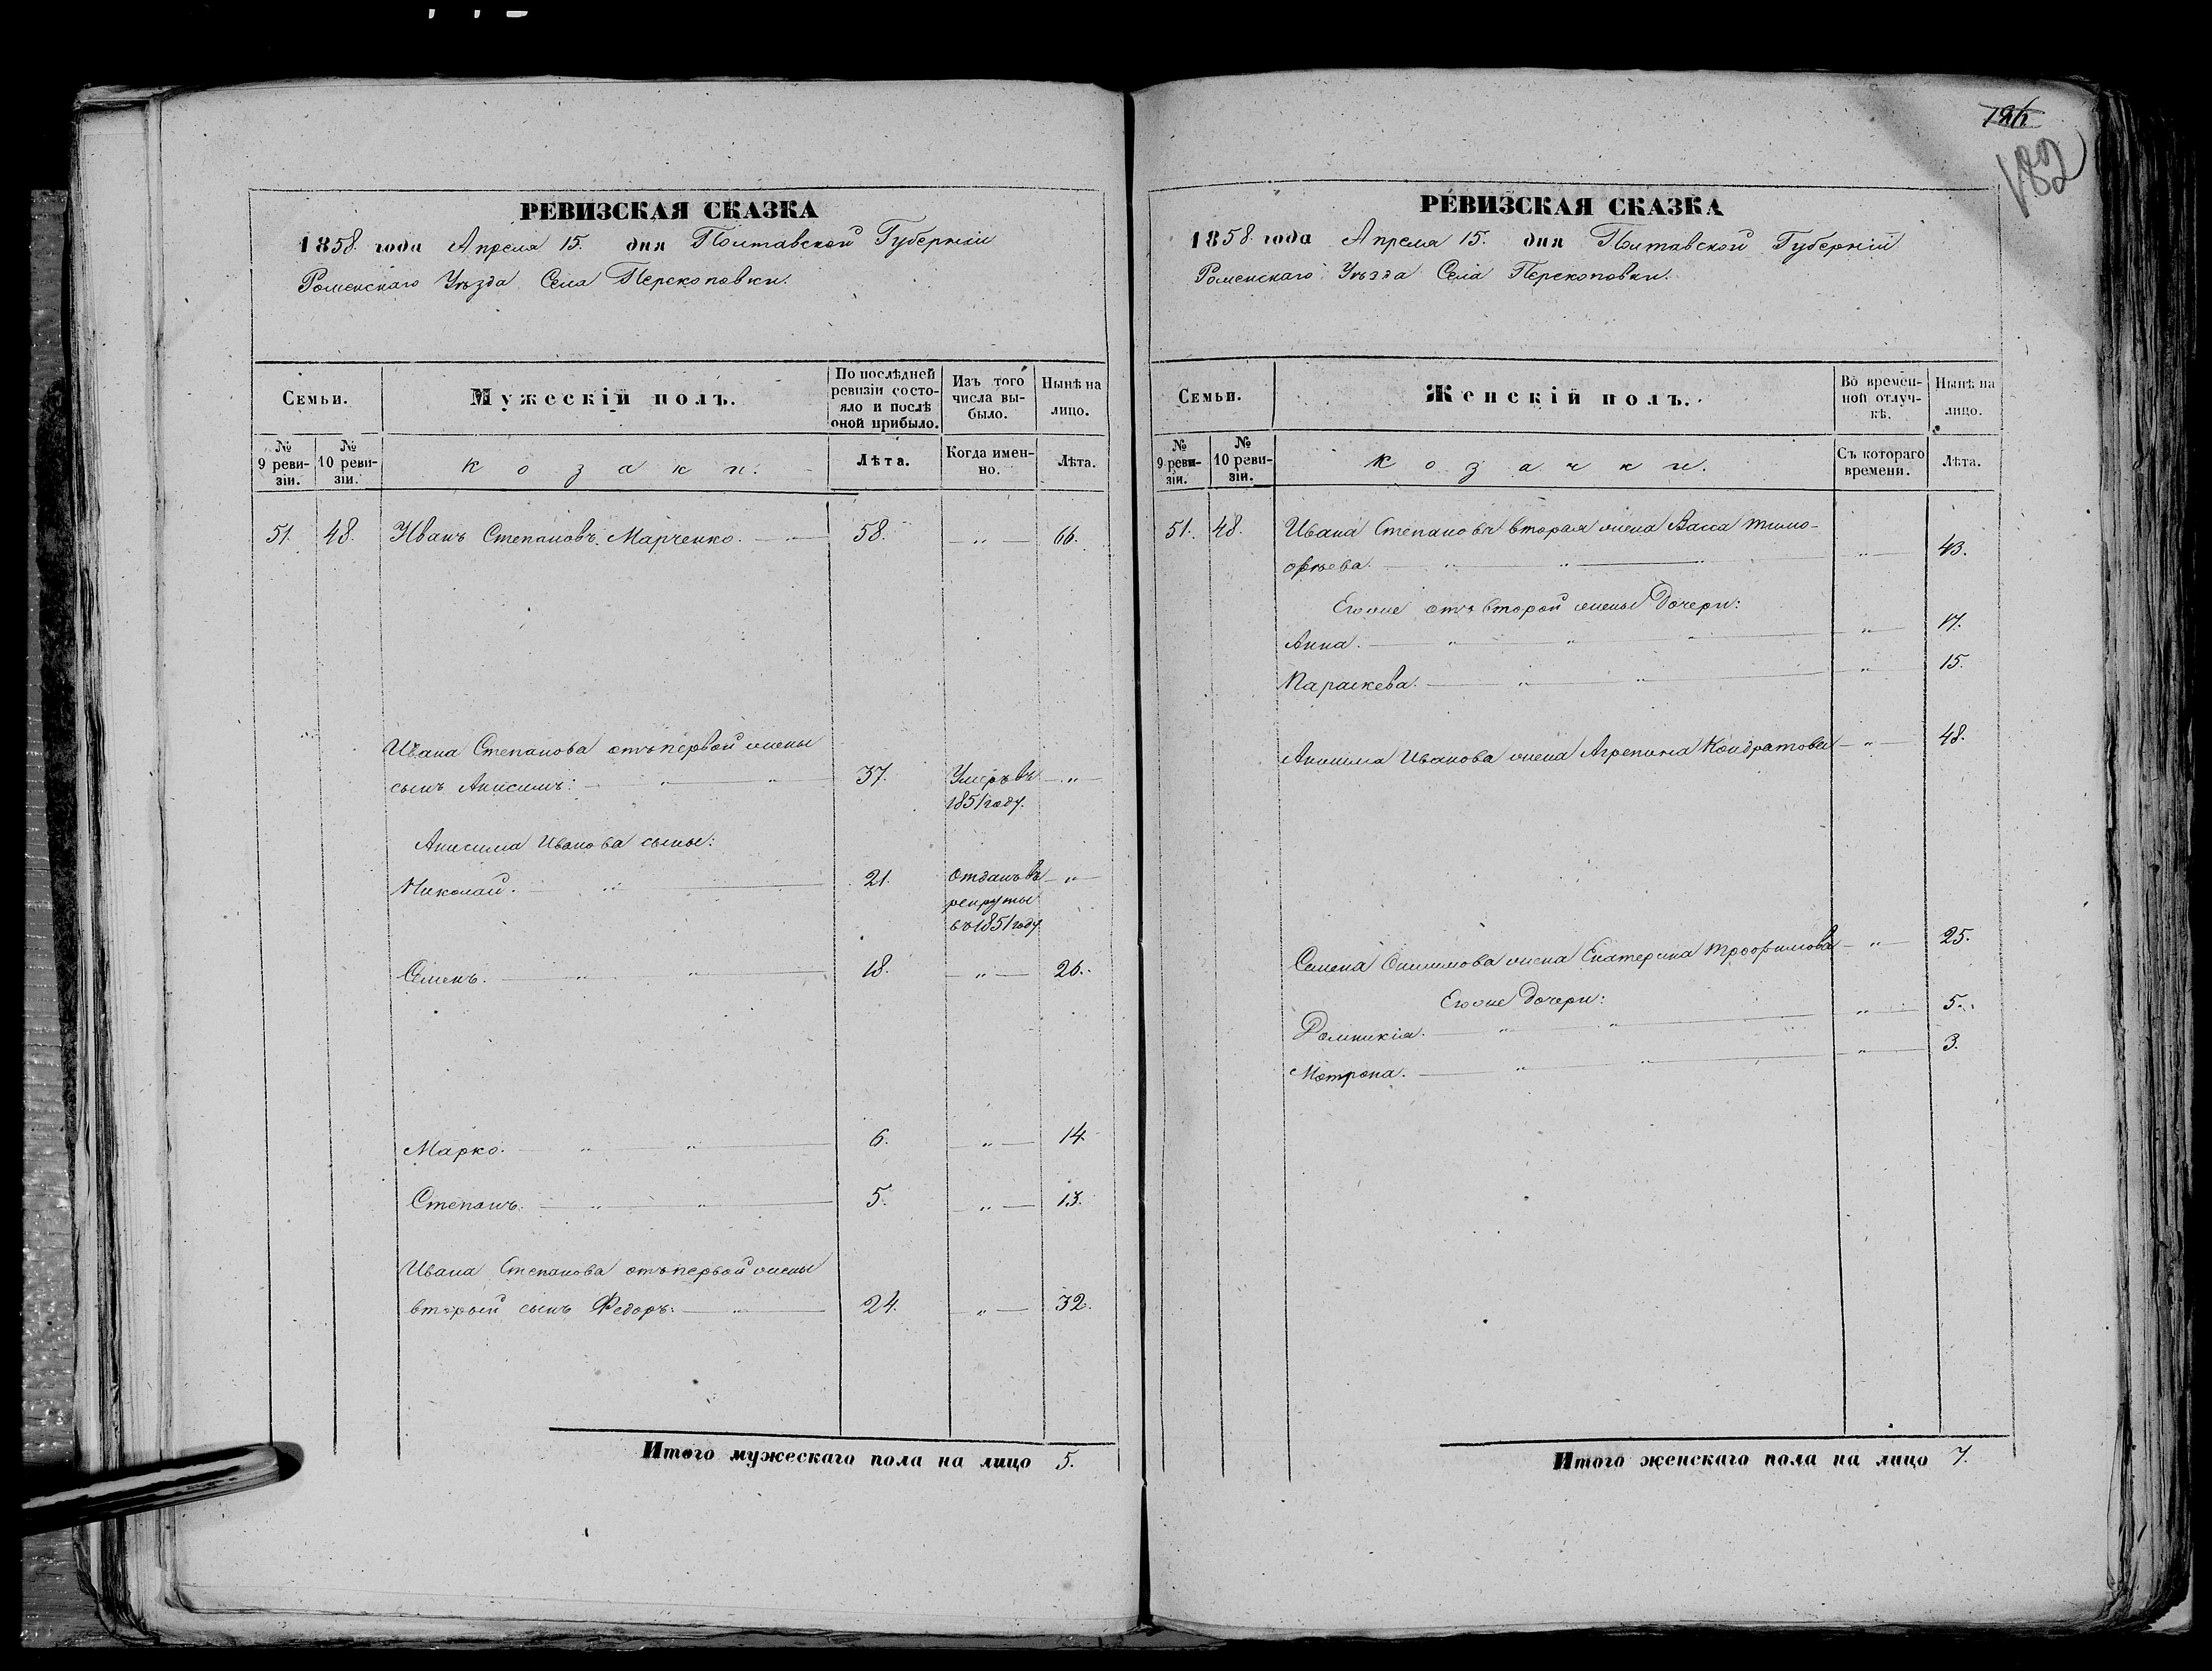 182
РЕВИЗСКАЯ СКАЗКА
1858 года Апреля 15. дня Полтавской Губерніи
Роменскаго Уѣзда Села Перекоповки.
Семьи.
Мужескій полъ.
По послѣдней ревизіи состояло и послѣ оной прибыло.
Изъ того числа выбыло.
Нынѣ на лицо.
№ 9 ревизіи.
№ 10 ревизіи.
Козаки.
Лѣта.
Когда именно.
Лѣта.
51. 48. Иванъ Степановъ Марченко. 58. — " — 66.
Ивана Степанова отъ первой жены
сынъ Анисимъ: " " 37. Умеръ въ — " —
1851 году.
Анисима Иванова сыны:
Николай. " 21. Отданъ въ — " —
рекруты
въ 1851 году
Семенъ. " " 18. — " — 26.
Марко. " " 6. — " — 14
Степанъ. " " 5. — " — 13.
Ивана Степанова отъ первой жены
вторый сынъ Федоръ: " 24. — " — 32.
Итого мужескаго пола на лицо 5.
РЕВИЗСКАЯ СКАЗКА
1858 года Апреля 15. дня Полтавской Губерніи
Роменскаго Уѣзда Села Перекоповки.
Семьи.
Женскій полъ.
Во временной отлучкѣ.
Нынѣ на лицо.
№ 9 ревизіи.
№ 10 ревизіи.
Козачки.
Съ котораго времени.
Лѣта.
51. 48. Ивана Степанова вторая жена Васса Тимо-
офѣева. " " — " — 43.
Его же отъ второй жены дочери:
Анна. " " " — " — 17.
Параскева. " " — " — 15.
Анисима Иванова жена Агрепина Кондратова — " — 48.
Семена Онисимова жена Екатерина Трофимова — " — 25.
Его же дочери:
Домникія. " " — " — 5.
Мотрона. " " — " — 3.
Итого женскаго пола на лицо 7.